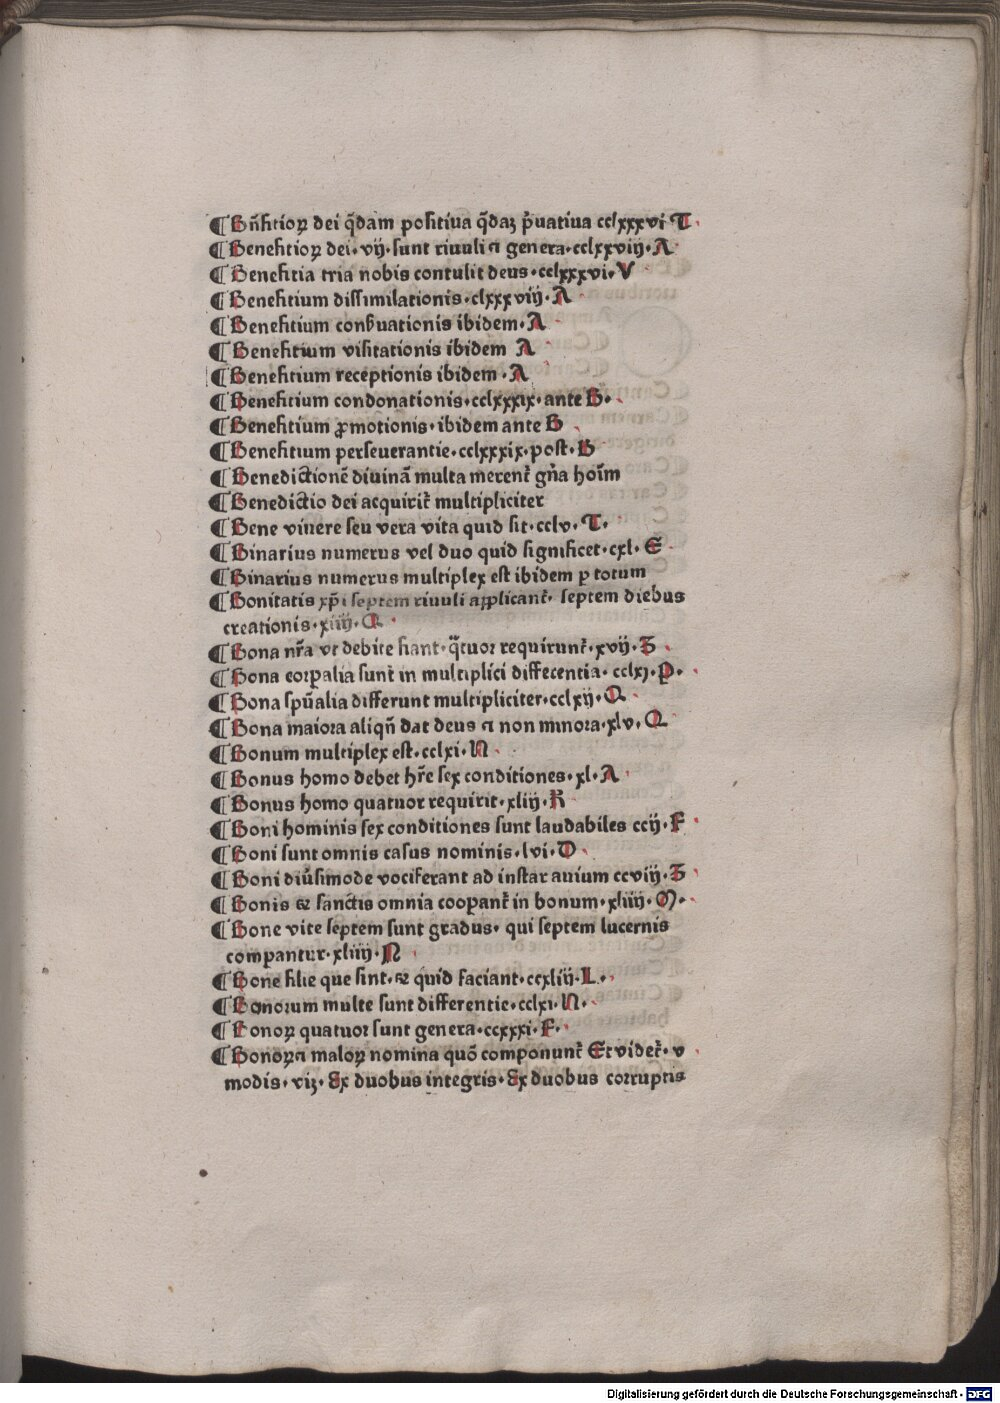 ¶Bn̄fitioꝝ dei q̄dam positiua q̄daꝫ p̄uatiua cclxxxvi T.
¶Benefitioꝝ dei. vij. sunt riuuli ⁊ genera. cclxxviij. A
¶Benefitia tria nobis contulit deus. cclxxxvi. V
¶Benefitium dissimilationis. clxxxviij. A
¶Benefitium conẜuationis ibidem. A
¶Benefitium visitationis ibidem A
¶Benefitium receptionis ibidem . A
¶Benefitium condonationis. cclxxxix. ante B.
¶Benefitium ꝓmotionis. ibidem ante B
¶Benefitium perseuerantie. cclxxxix. post. B
¶Benedictionē diuinā multa merent᷑ gn̄a hoīm
¶Benedictio dei acquirit᷑ multipliciter
¶Bene viuere seu vera vita quid sit. cclv. T.
¶Binarius numerus vel duo quid significet. cxl. E
¶Binarius numerus multiplex est ibidem ꝑ totum
¶Bonitatis xp̄i septem riuuli applicant᷑. septem diebus
creationis. xiiij. Q
¶Bona nr̄a vt debite fiant. q̄tuor requirunt᷑. xvij. Z
¶Bona corꝑalia sunt in multiplici differentia. cclxj. P.
¶Bona spūalia differunt multipliciter. cclxij. Q
¶Bona maiora aliqn̄ dat deus ⁊ non minora. xlv. Q
¶Bonum multiplex est. cclxi. N
¶Bonus homo debet hr̄e sex conditiones. xl. A
¶Bonus homo quatuor requirit. xliij. R
¶Boni hominis sex conditiones sunt laudabiles ccij. F
¶Boni sunt omnis casus nominis. lvi. D
¶Boni diūsimode vociferant ad instar auium ccviij. Z
¶Bonis ⁊ sanctis omnia cooꝑant᷑ in bonum. xliiij. M.
¶Bone vite septem sunt gradus. qui septem lucernis
comꝑantur. xliiij. N
¶Bone filie que sint. ⁊ quid faciant. ccxliij. L.
¶Bonorum multe sunt differentie. cclxi. N.
¶Bonoꝝ quatuor sunt genera. ccxxxi. F.
¶Bonoꝝ ⁊ maloꝝ nomina quō componunt᷑ Et videt᷑. v
modis. viꝫ. Ex duobus integris. Ex duobus corruptis
Digitalisierung gefördert durch die Deutsche Forschungsgemeinschaft - DFG